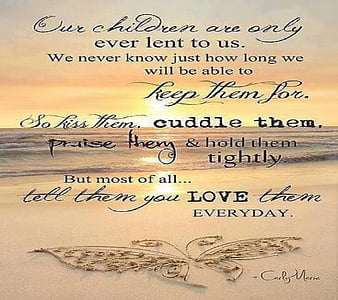 Our children are only
ever lent to us.
We never know just how long we
will be able to
keep them for.
So kiss them, cuddle them,
praise them & hold them
tightly.
But most of all...
tell them you LOVE them
EVERYDAY.
- Carly Marie